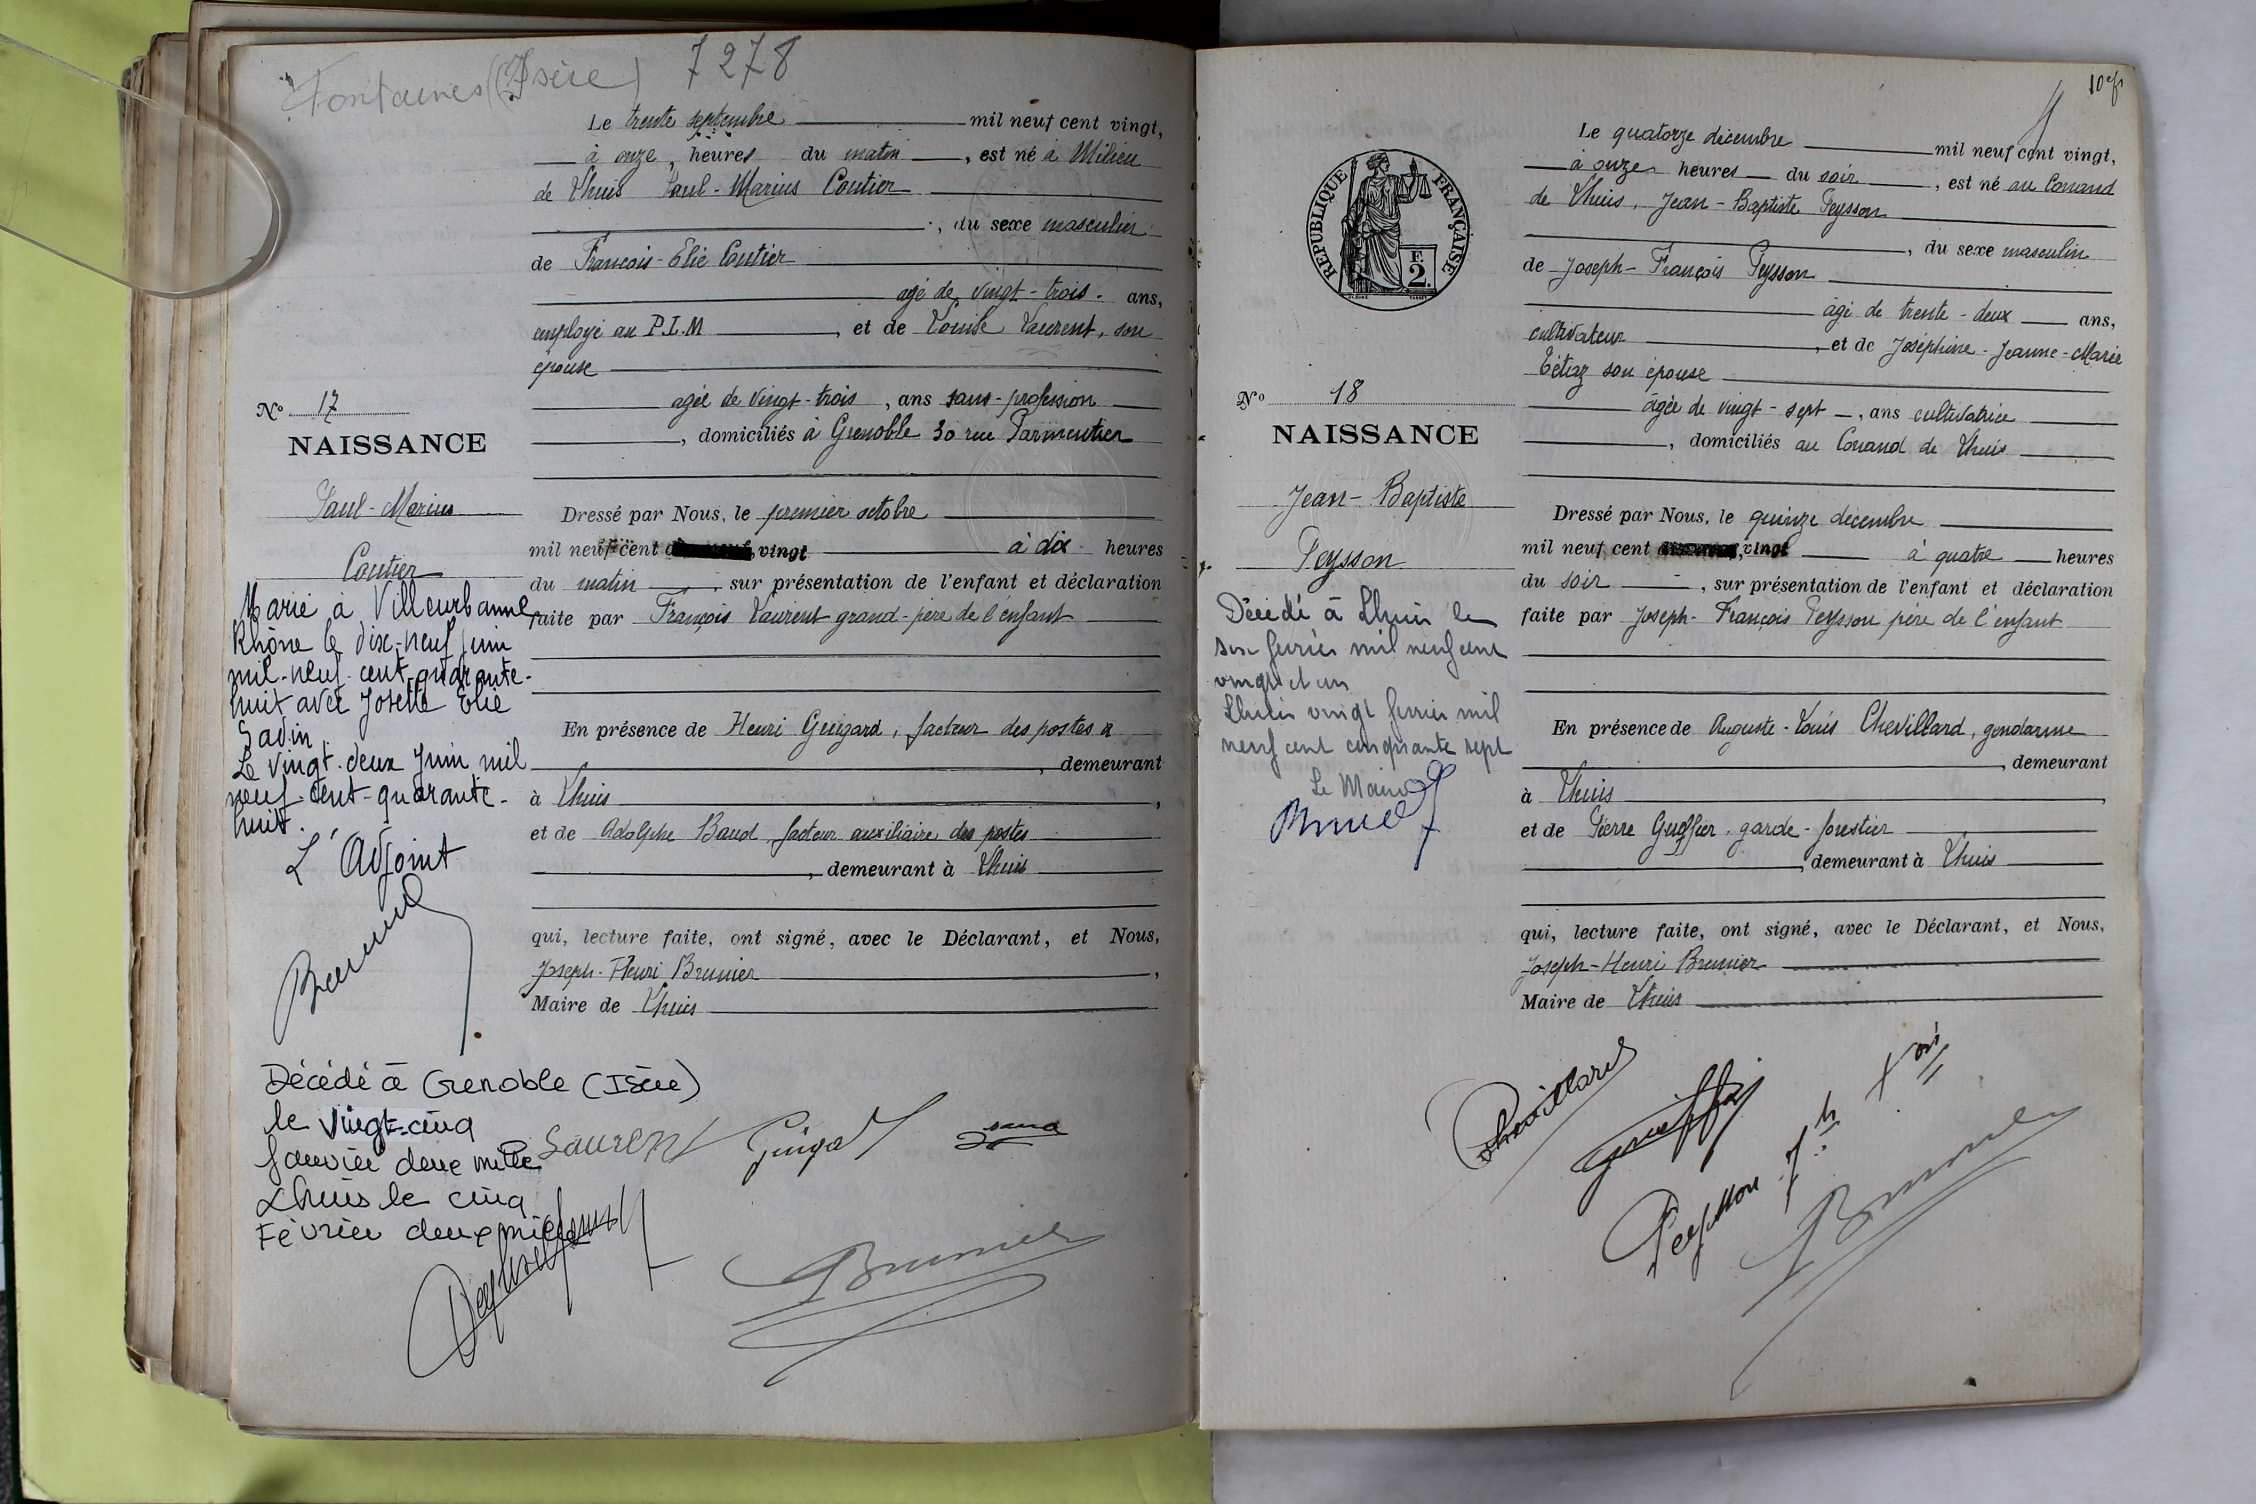 Fontaines (Isère) 7278
Le trente septembre mil neuf cent vingt,
à onze, heures du matin, est né à Milieu
de Lhuis Paul-Marius Coutier
, du sexe masculin
de François-Elie Coutier
agé de vingt-trois. ans,
employé au P.L.M, et de Louise Laurent, son
épouse
agée de vingt-trois, ans sans-profession
, domiciliés à Grenoble 30 rue Parmentier
Dressé par Nous, le premier octobre
mil neuf cent vingt à dix heures
du matin, sur présentation de l'enfant et déclaration
faite par François Laurent grand-père de l'enfant
En présence de Henri Guigard, facteur des postes
, demeurant
à Lhuis,
et de Adolphe Baud, facteur auxiliaire des postes
, demeurant à Lhuis
qui, lecture faite, ont signé, avec le Déclarant, et Nous,
Joseph-Henri Brunier,
Maire de Lhuis
No 17
NAISSANCE
Paul-Marius
Coutier
Marié à Villeurbanne
Rhône le dix-neuf juin
mil-neuf-cent-quarante-
huit avec Josette Elie
Sadin.
Le vingt-deux Juin mil
neuf-cent-quarante-
huit.
L'Adjoint
Décédé à Grenoble (Isère)
le vingt-cinq
Janvier deux mille
Lhuis le cinq
Février deux mille
Laurent Guigard Baud
Brunier
10 e f
REPUBLIQUE FRANÇAISE
F.
2.
Le quatorze décembre mil neuf cent vingt,
à onze heures du soir, est né au Conand
de Lhuis, Jean-Baptiste Peysson
, du sexe masculin
de Joseph-François Peysson
âgé de trente-deux ans,
cultivateur, et de Joséphine-Jeanne-Marie
Tétaz son épouse
âgée de vingt-sept, ans cultivatrice
, domiciliés au Conand de Lhuis
Dressé par Nous, le quinze décembre
mil neuf cent vingt à quatre heures
du soir, sur présentation de l'enfant et déclaration
faite par Joseph-François Peysson père de l'enfant
En présence de Auguste-Louis Chevillard, gendarme
, demeurant
à Lhuis,
et de Pierre Gueffier, garde-forestier
, demeurant à Lhuis
qui, lecture faite, ont signé, avec le Déclarant, et Nous,
Joseph-Henri Brunier
Maire de Lhuis
No 18
NAISSANCE
Jean-Baptiste
Peysson
Décédé à Lhuis le
six février mil neuf cent
vingt et un
Lhuis vingt février mil
neuf cent cinquante sept
Le Maire
Chevillard
Gueffier
Peysson Jh fois
Brunier